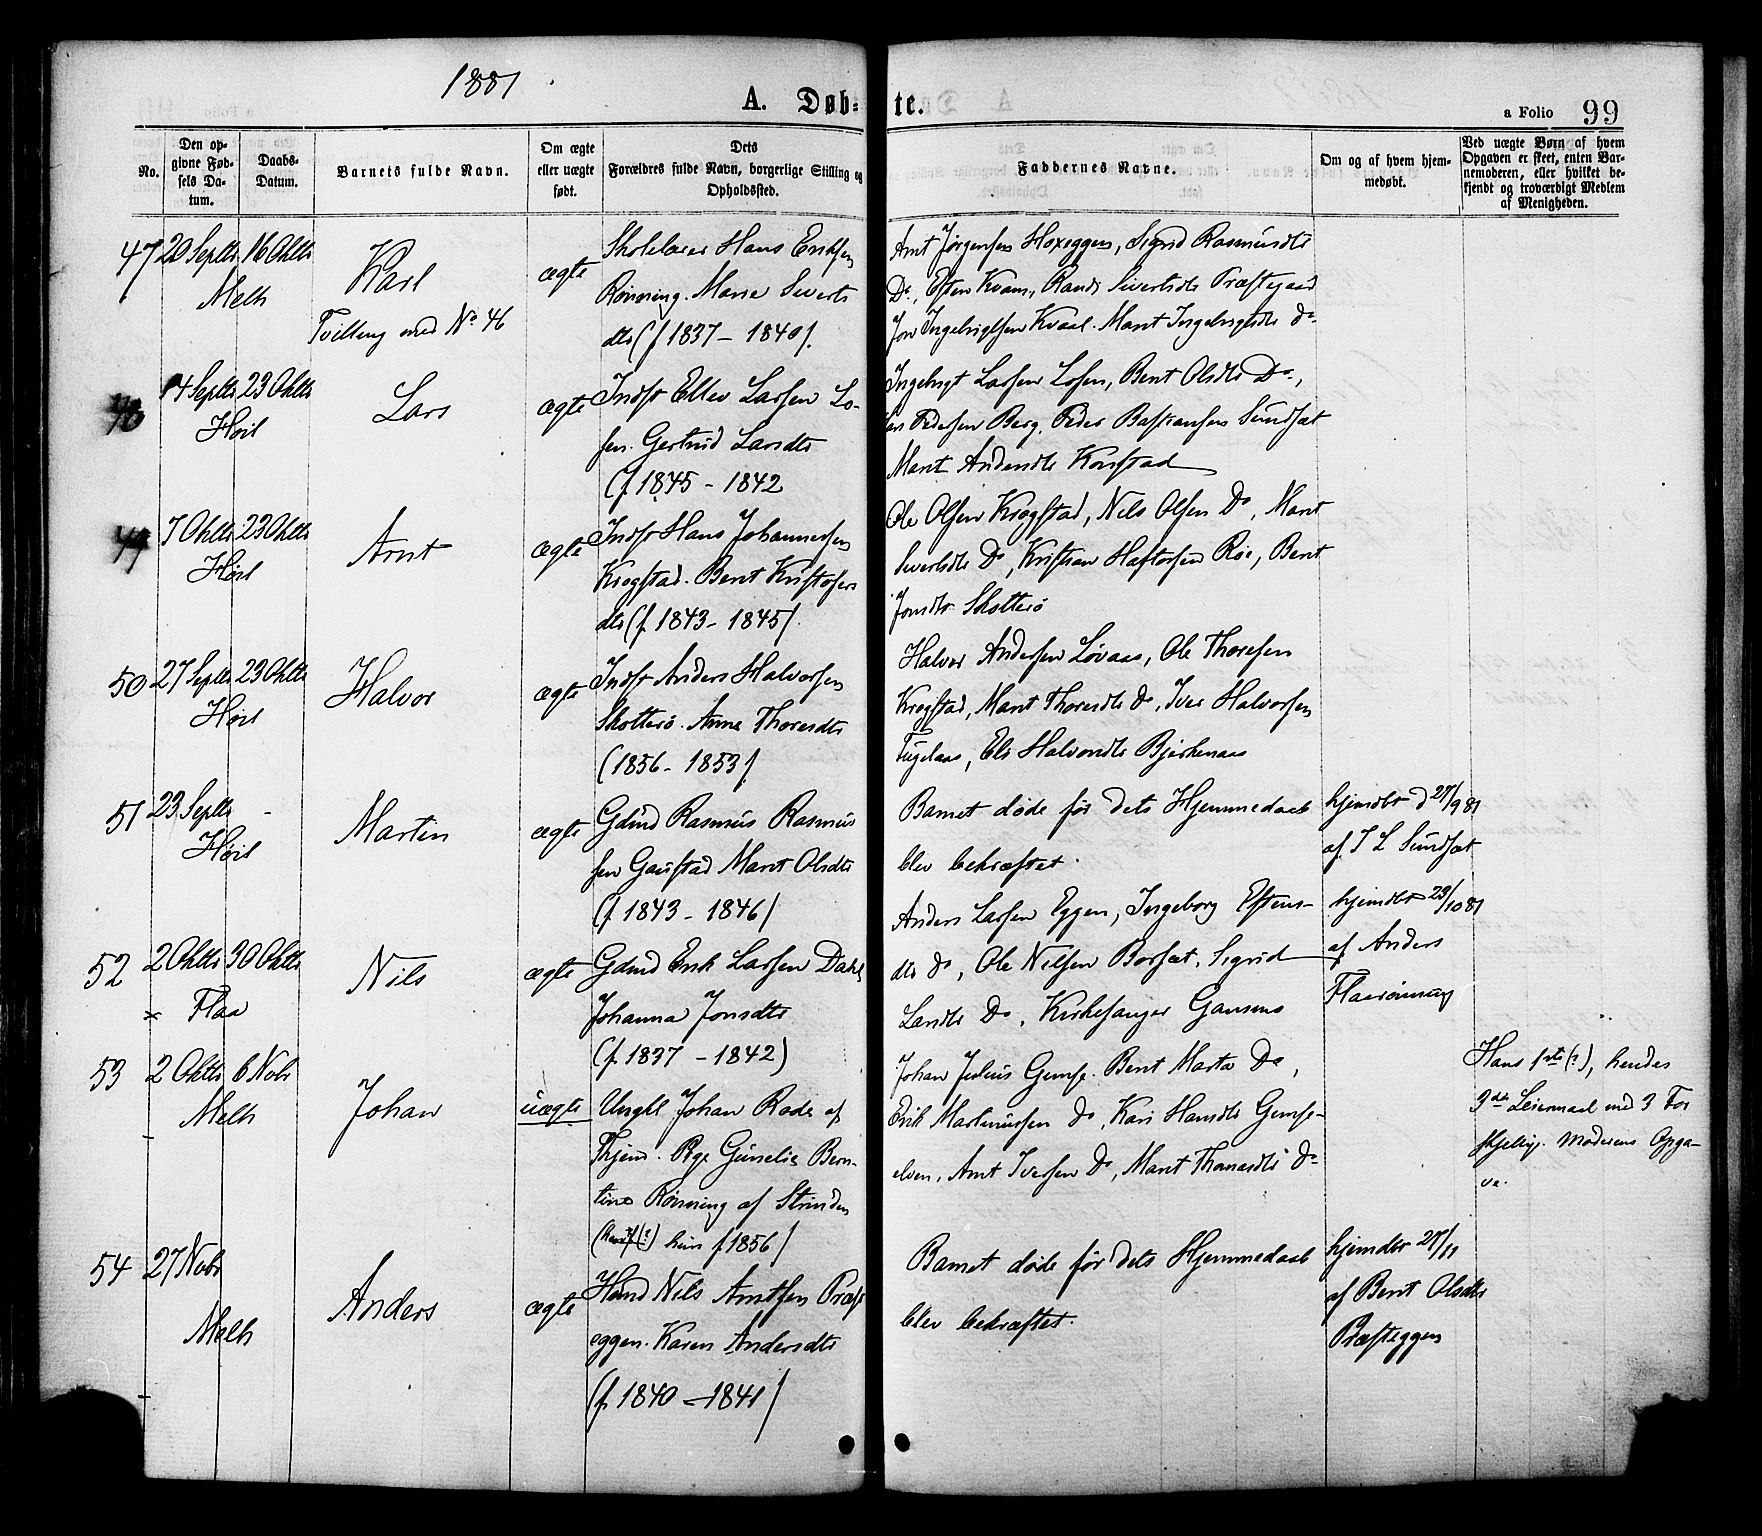 1881
A. Døb-
te.
a Folio 99
No.
Den op-
givne Fød-
sels Da-
tum.
Daabs-
Datum.
Barnets fulde Navn.
Om ægte
eller uægte
født.
Dets
Forældres fulde Navn, borgerlige Stilling og
Opholdssted.
Faddernes Navne.
Om og af hvem hjem-
medøbt.
Ved uægte Børn af hvem
Opgaven er skeet, enten Bar-
nemoderen, eller hvilket be-
kjendt og troværdigt Medlem
af Menigheden.
47 20 Septbr 16 Oktbr
Melh
Karl
Tvilling med No 46
ægte
Skolelærer Hans Eriksen
Rønning. Marie Siverts
dtr (f 1837 - 1840).
Arnt Jørgensen Hoxeggen, Sigrid Rasmusdtr
Do, Esten Kvam, Randi Sivertsdtr Præstegaard
Jon Ingebrigtsen Kvaal. Marit Ingebrigtsdtr do
48 14 Septbr 23 Oktbr
Høil
Lars
ægte
Indst Ellev Larsen Lo-
sen. Gertrud Larsdtr
(f. 1845 - 1842
Ingebrigt Larsen Losen, Berit Olsdtr Do,
Lars Pedersen Berg, Peder Bastiansen Sundsæt
Marit Andersdtr Korstad
49 7 Oktbr 23 Oktbr
Høil
Arnt
ægte
Indst Hans Johannesen
Kregstad. Berit Kristofers
dtr (f. 1843 - 1845).
Ole Olsen Kregstad, Nils Olsen Do, Marit
Sivertsdtr Do, Kristian Haftorsen Røe, Berit
Jonsdtr Skotterø
50 27 Septbr 23 Oktbr
Høil
Halvor
ægte
Indst Anders Halvorsen
Skotterø. Anne Thoresdtr
(1856 - 1853).
Halvor Andersen Løvaas, Ole Thoresen
Kregstad, Marit Thoresdtr do, Iver Halvorsen
Fuglaas, Eli Halvorsdtr Bjerkenaas
51 23 Septbr -
Høil
Martin
ægte
Gdmd Rasmus Rasmus
sen Gaustad Marit Olsdtr
(f. 1843 - 1846)
Barnet døde før dets Hjemmedaab
blev bekræftet.
hjemdbt d 27/9 81
af I L Sundsæt
52 2 Oktbr 30 Oktbr
× Flaa
Nils
ægte
Gdmd Erik Larsen Dahl
Johanna Jonsdtr
(f. 1837 - 1842)
Anders Larsen Eggen, Ingeborg Estens-
dtr do, Ole Nilsen Borsæt, Sigrid
Larsdtr Do, Kirkesanger Gansmo
hjemdbt 23/10 81
af Anders
Flaarønning
53 2 Oktbr 6 Novbr
Melh
Johan
uægte
Ungkl Johan Rode af
Thjem. Pige Gunelie Bern-
tine Rønning af Strinden
hun f. 1856)
Johan Julius Gimse. Berit Marta Do,
Erik Martinussen Do, Kari Hansdtr Gimse-
elven, Arnt Iversen Do, Marit Thomasdtr Do
Hans 1ste (?), hendes
3die Leiermaal med 3 For
skjellige. Moderens Opga-
ve.
54 27 Novbr
Melh
Anders
ægte
Hsmd Nils Arntsen Præst
eggen. Karen Andersdtr
(f. 1840 - 1841)
Barnet døde før dets Hjemmedaab
blev bekræftet.
hjemdbt 27/11
af Berit Olsdtr
Præsteggen